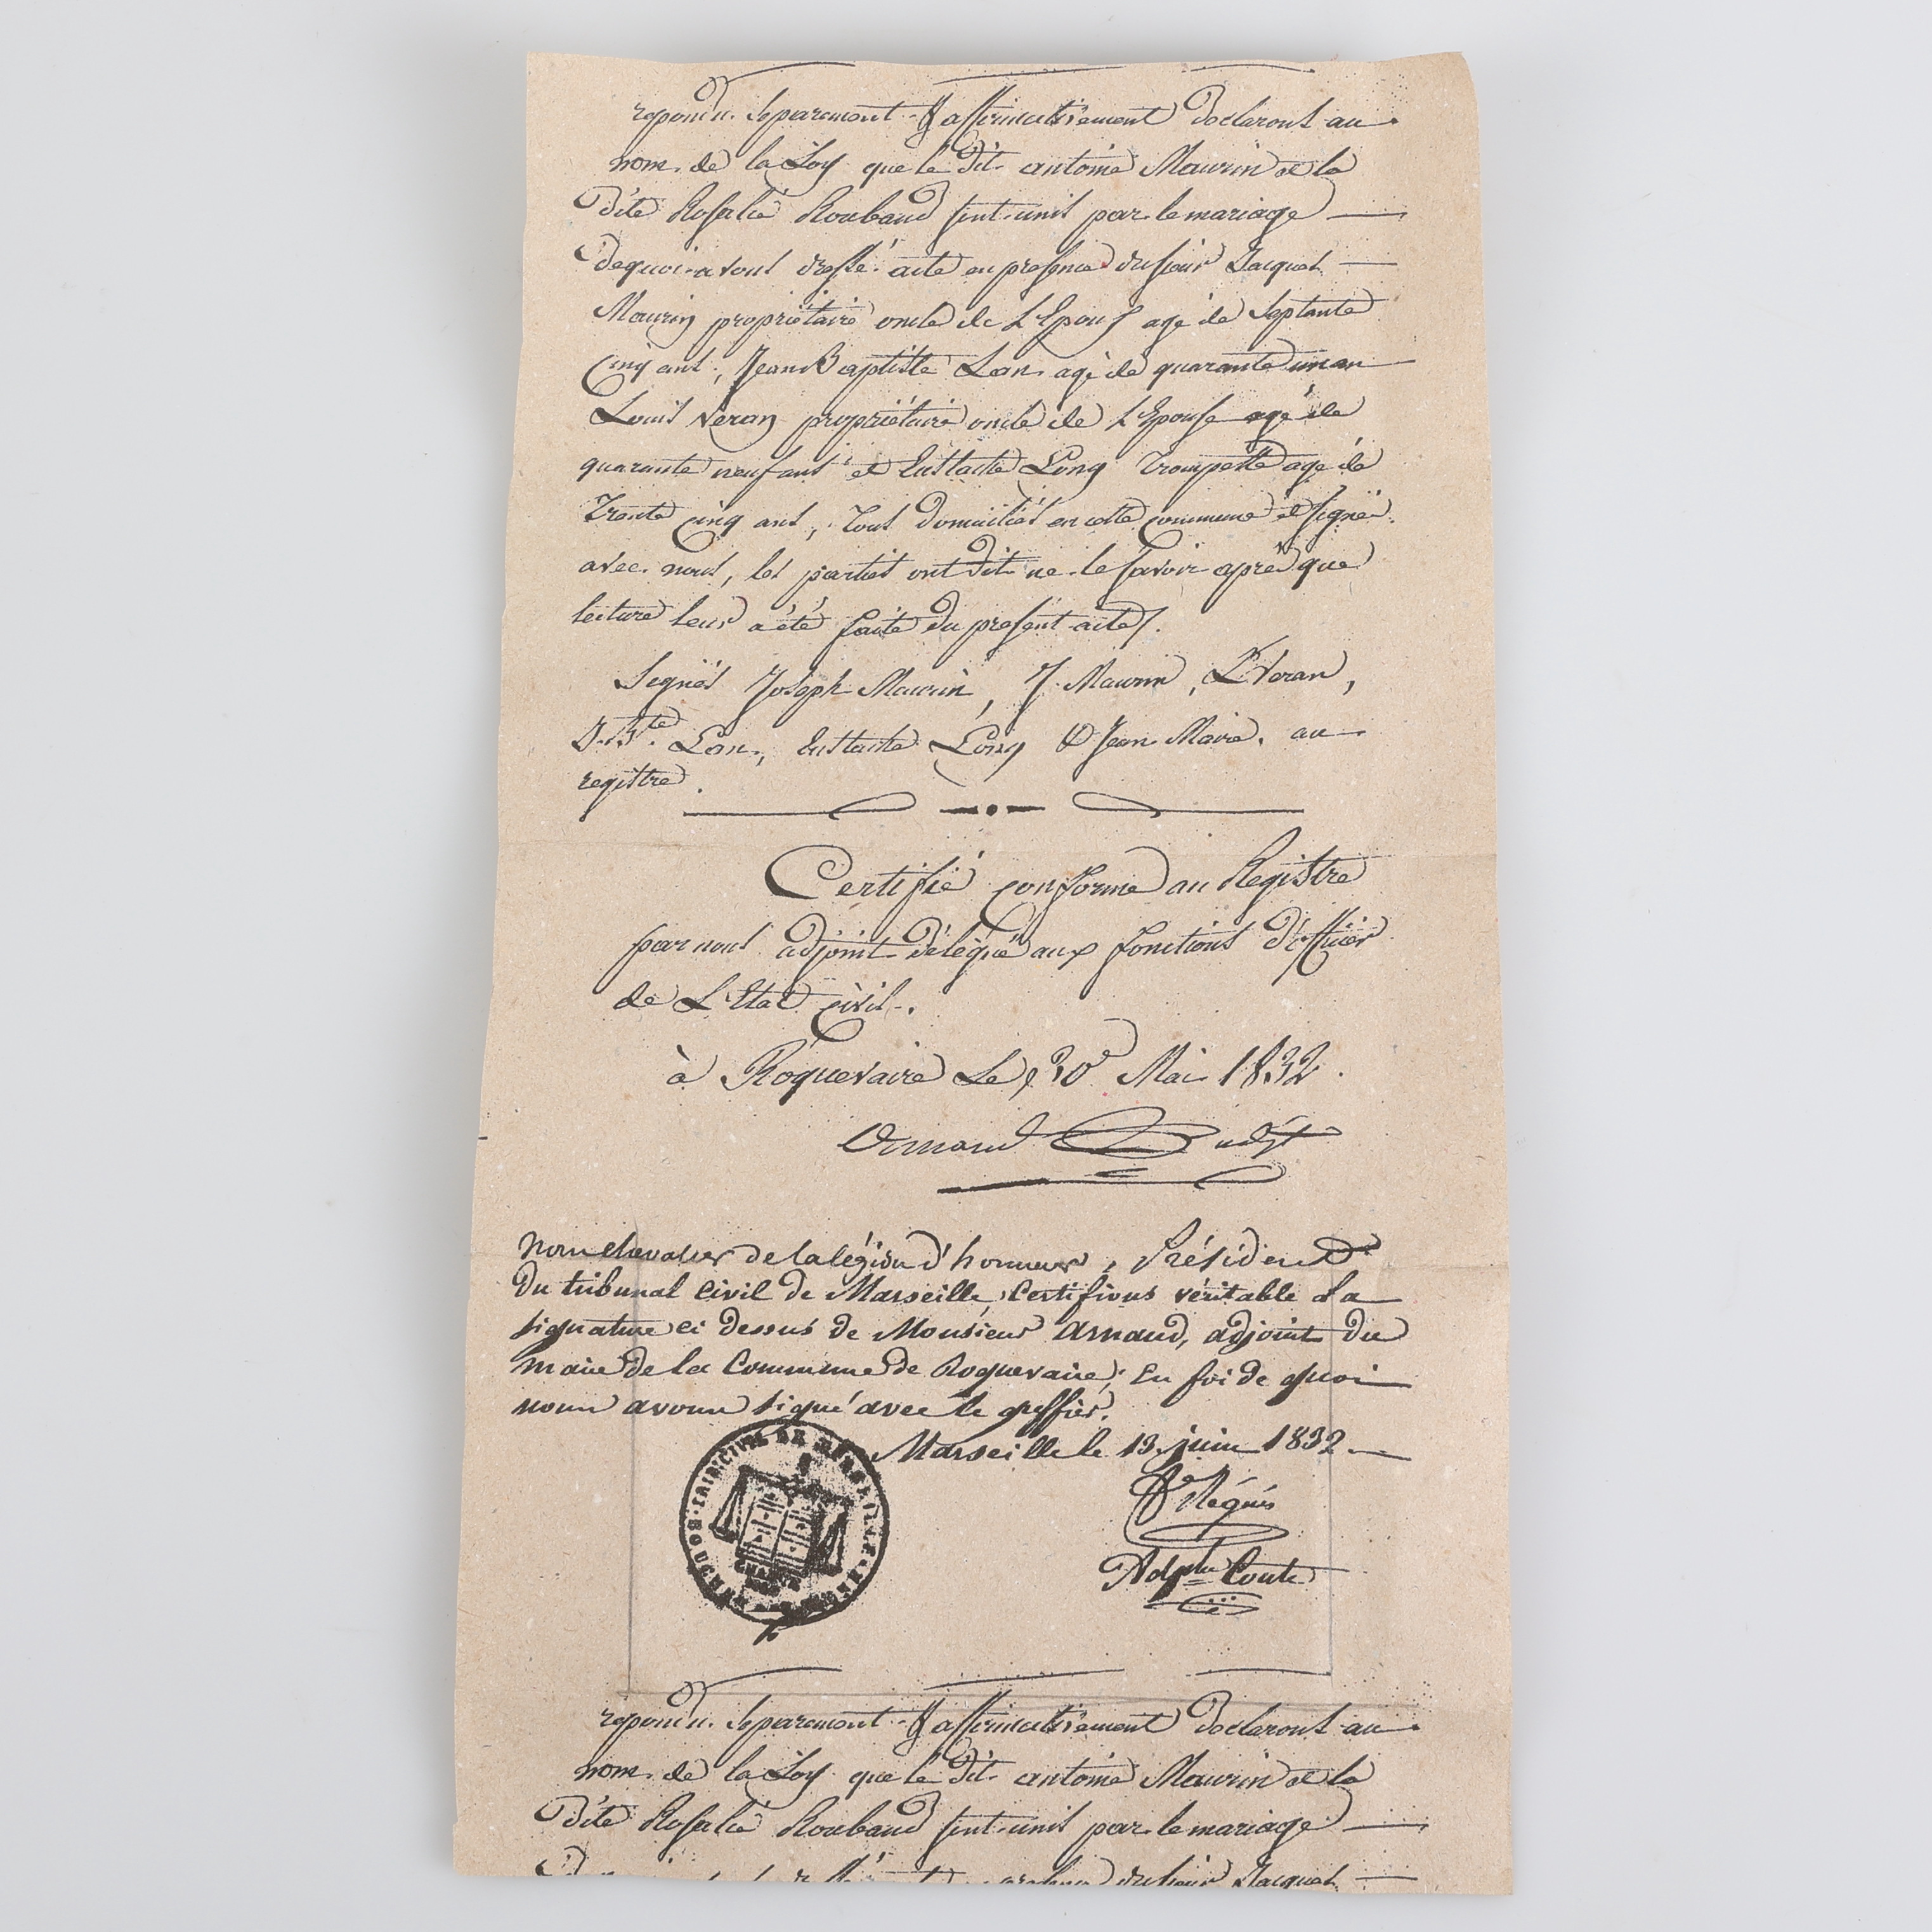 repondu separement & affirmativement Declarons au
nom de la Loy que le Dit antoine Maurin et la
Dite Rosalie Roubaud sont unis par le mariage
dequoi avons dressé acte en presence du sieur Jacques
Maurin propriétaire oncle de L'Epoux agé de Septante
Cinq ans, Jean Baptiste Lan agé de quarante un an
Louis Veran propriétaire oncle de L'Epouse agé de
quarante neuf ans et Eustache Long Trompette agé de
Trente cinq ans, Tous Domiciliés en cette commune et signé
avec nous, les parties ont Dit ne le savoir après que
lecture leur a été faite Du present acte
Signés Joseph Maurin, J. Maurin, L. Veran,
J. Bte. Lan, Eustache Long & Jean Maire. au
registre.
Certifié conforme au Registre
par nous adjoint Délégué aux fonctions D'officier
de L'Etat Civil.
à Roquevaire Le 30 Mai 1832.
Arnaud adjt
nous chevalier de la légion d'honneur, Président
Du tribunal Civil de Marseille, Certifions véritable La
signature ci dessus de Monsieur Arnaud, adjoint Du
maire de la Commune de Roquevaire; En foi de quoi
nous avons signé avec le greffier.
Marseille le 13 juin 1832
Réguis
Adphe Coute
CIVIL DE MARSEILLE
BOUCHES
CHARTE
repondu separement & affirmativement Declarons au
nom de la Loy que le Dit antoine Maurin et la
Dite Rosalie Roubaud sont unis par le mariage
presence du sieur Jacques